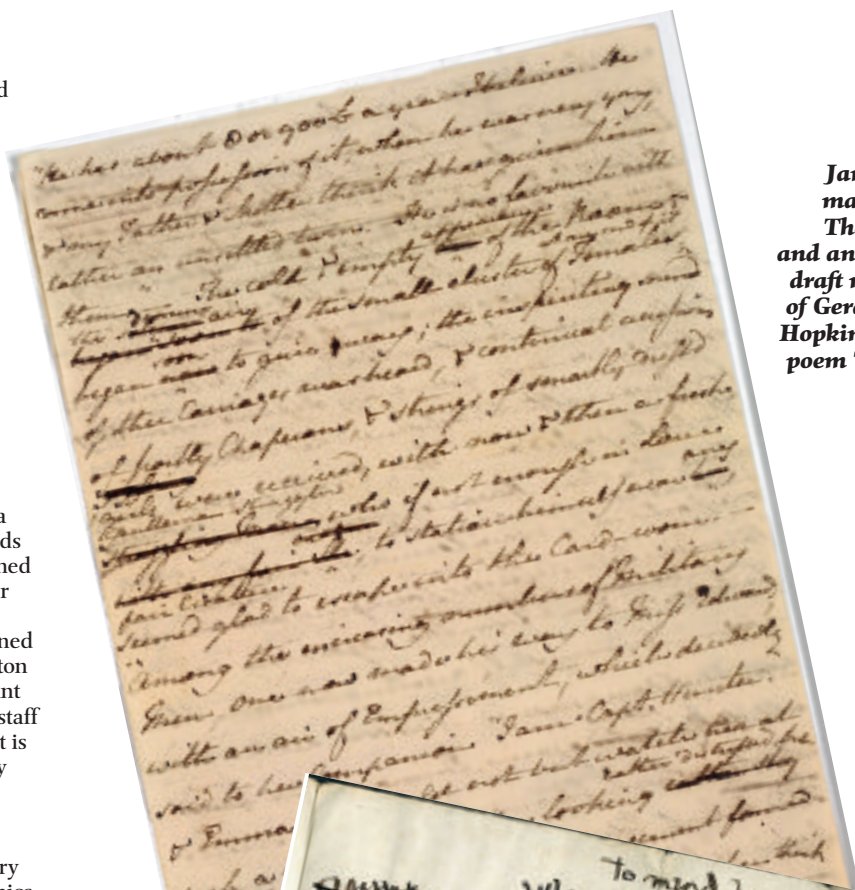 d
a
ds
ned
r
ned
ton
nt
staff
t is
y
ry
Jan
ma
Th
and an
draft m
of Gera
Hopkin
poem '
He has about 8 or 900£ a year I believe. He
came into possession of it, when he was very young,
& my Father & Mother think it has given him
rather an unsettled turn. He is no favourite with
them. The cold & empty appearance of the Room &
the air of the small cluster of Females
began soon to give way; the inspiriting sound
of other Carriages was heard, & continual accessions
of portly Chaperons, & strings of smartly dressed
girls were received, with now & then a fresh
Gentleman straggler, who if not enough in Love
to station himself near any
fair creature
seemed glad to escape into the Card-room.
Among the increasing numbers of Military
Men, one now made his way to Miss Edwards,
with an air of Empressément, which decidedly
said to her Companion "I am Capt. Hunter."
& Emma not but watch her at
looking rather distressed
formed
think
to mind